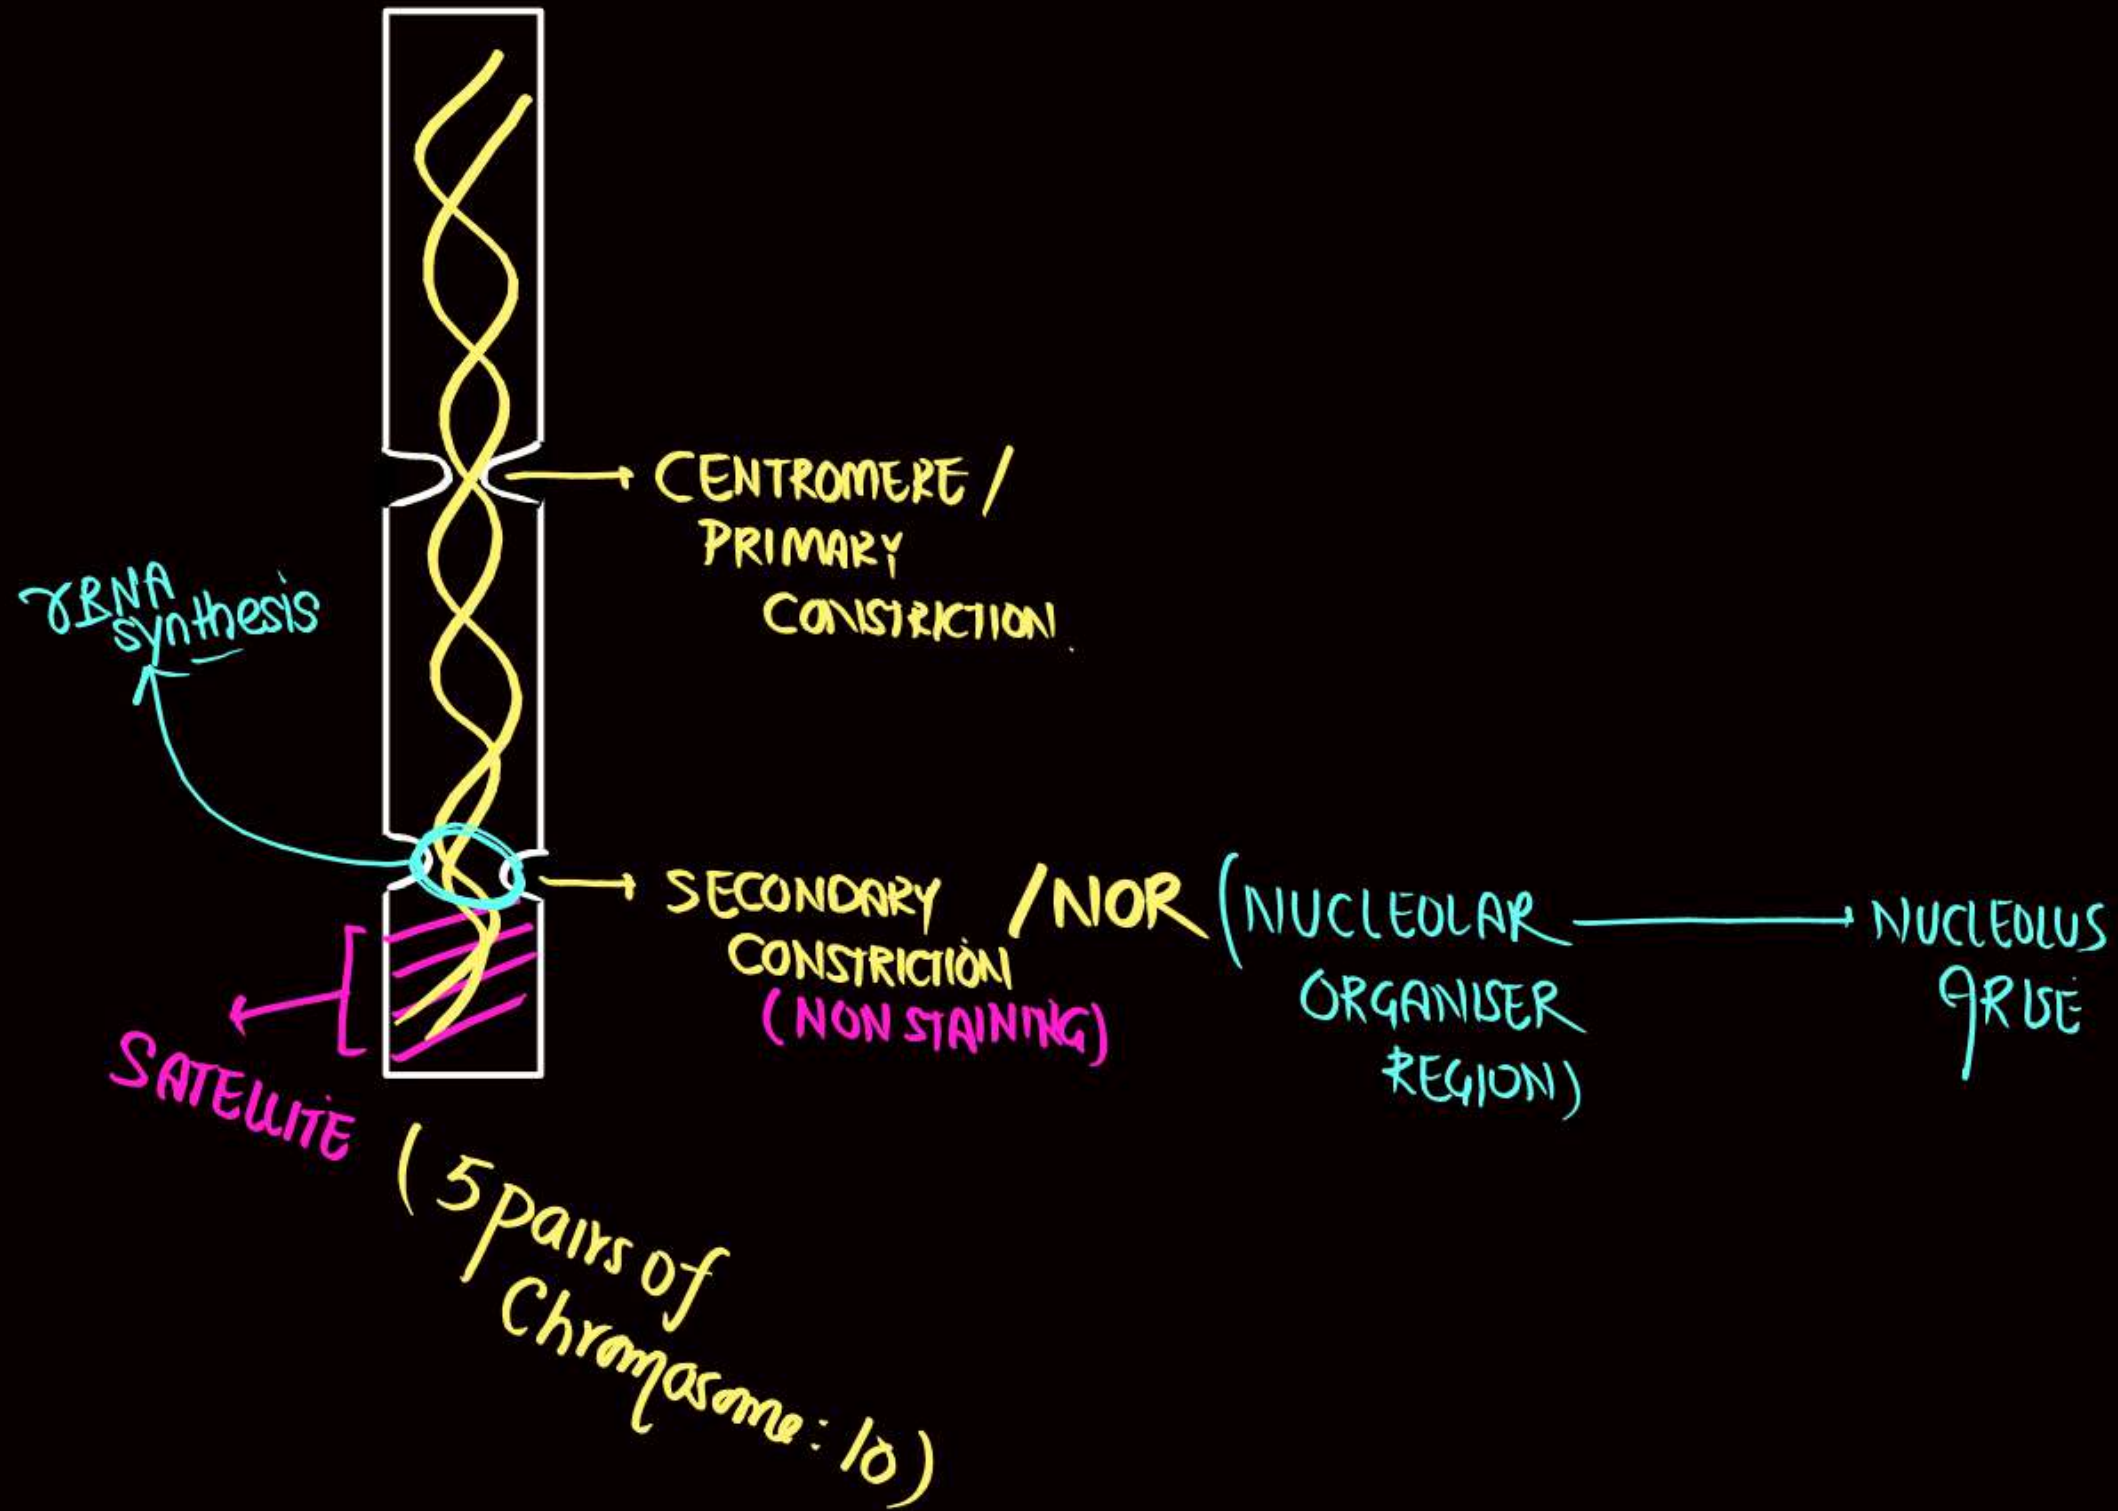 CENTROMERE /
PRIMARY
CONSTRICTION.
rRNA
synthesis
SECONDARY /NOR (NUCLEOLAR
CONSTRICTION
(NON STAINING)
ORGANISER
REGION)
NUCLEOLUS
ARISE
SATELLITE
(5 pairs of
Chromasome: 10)